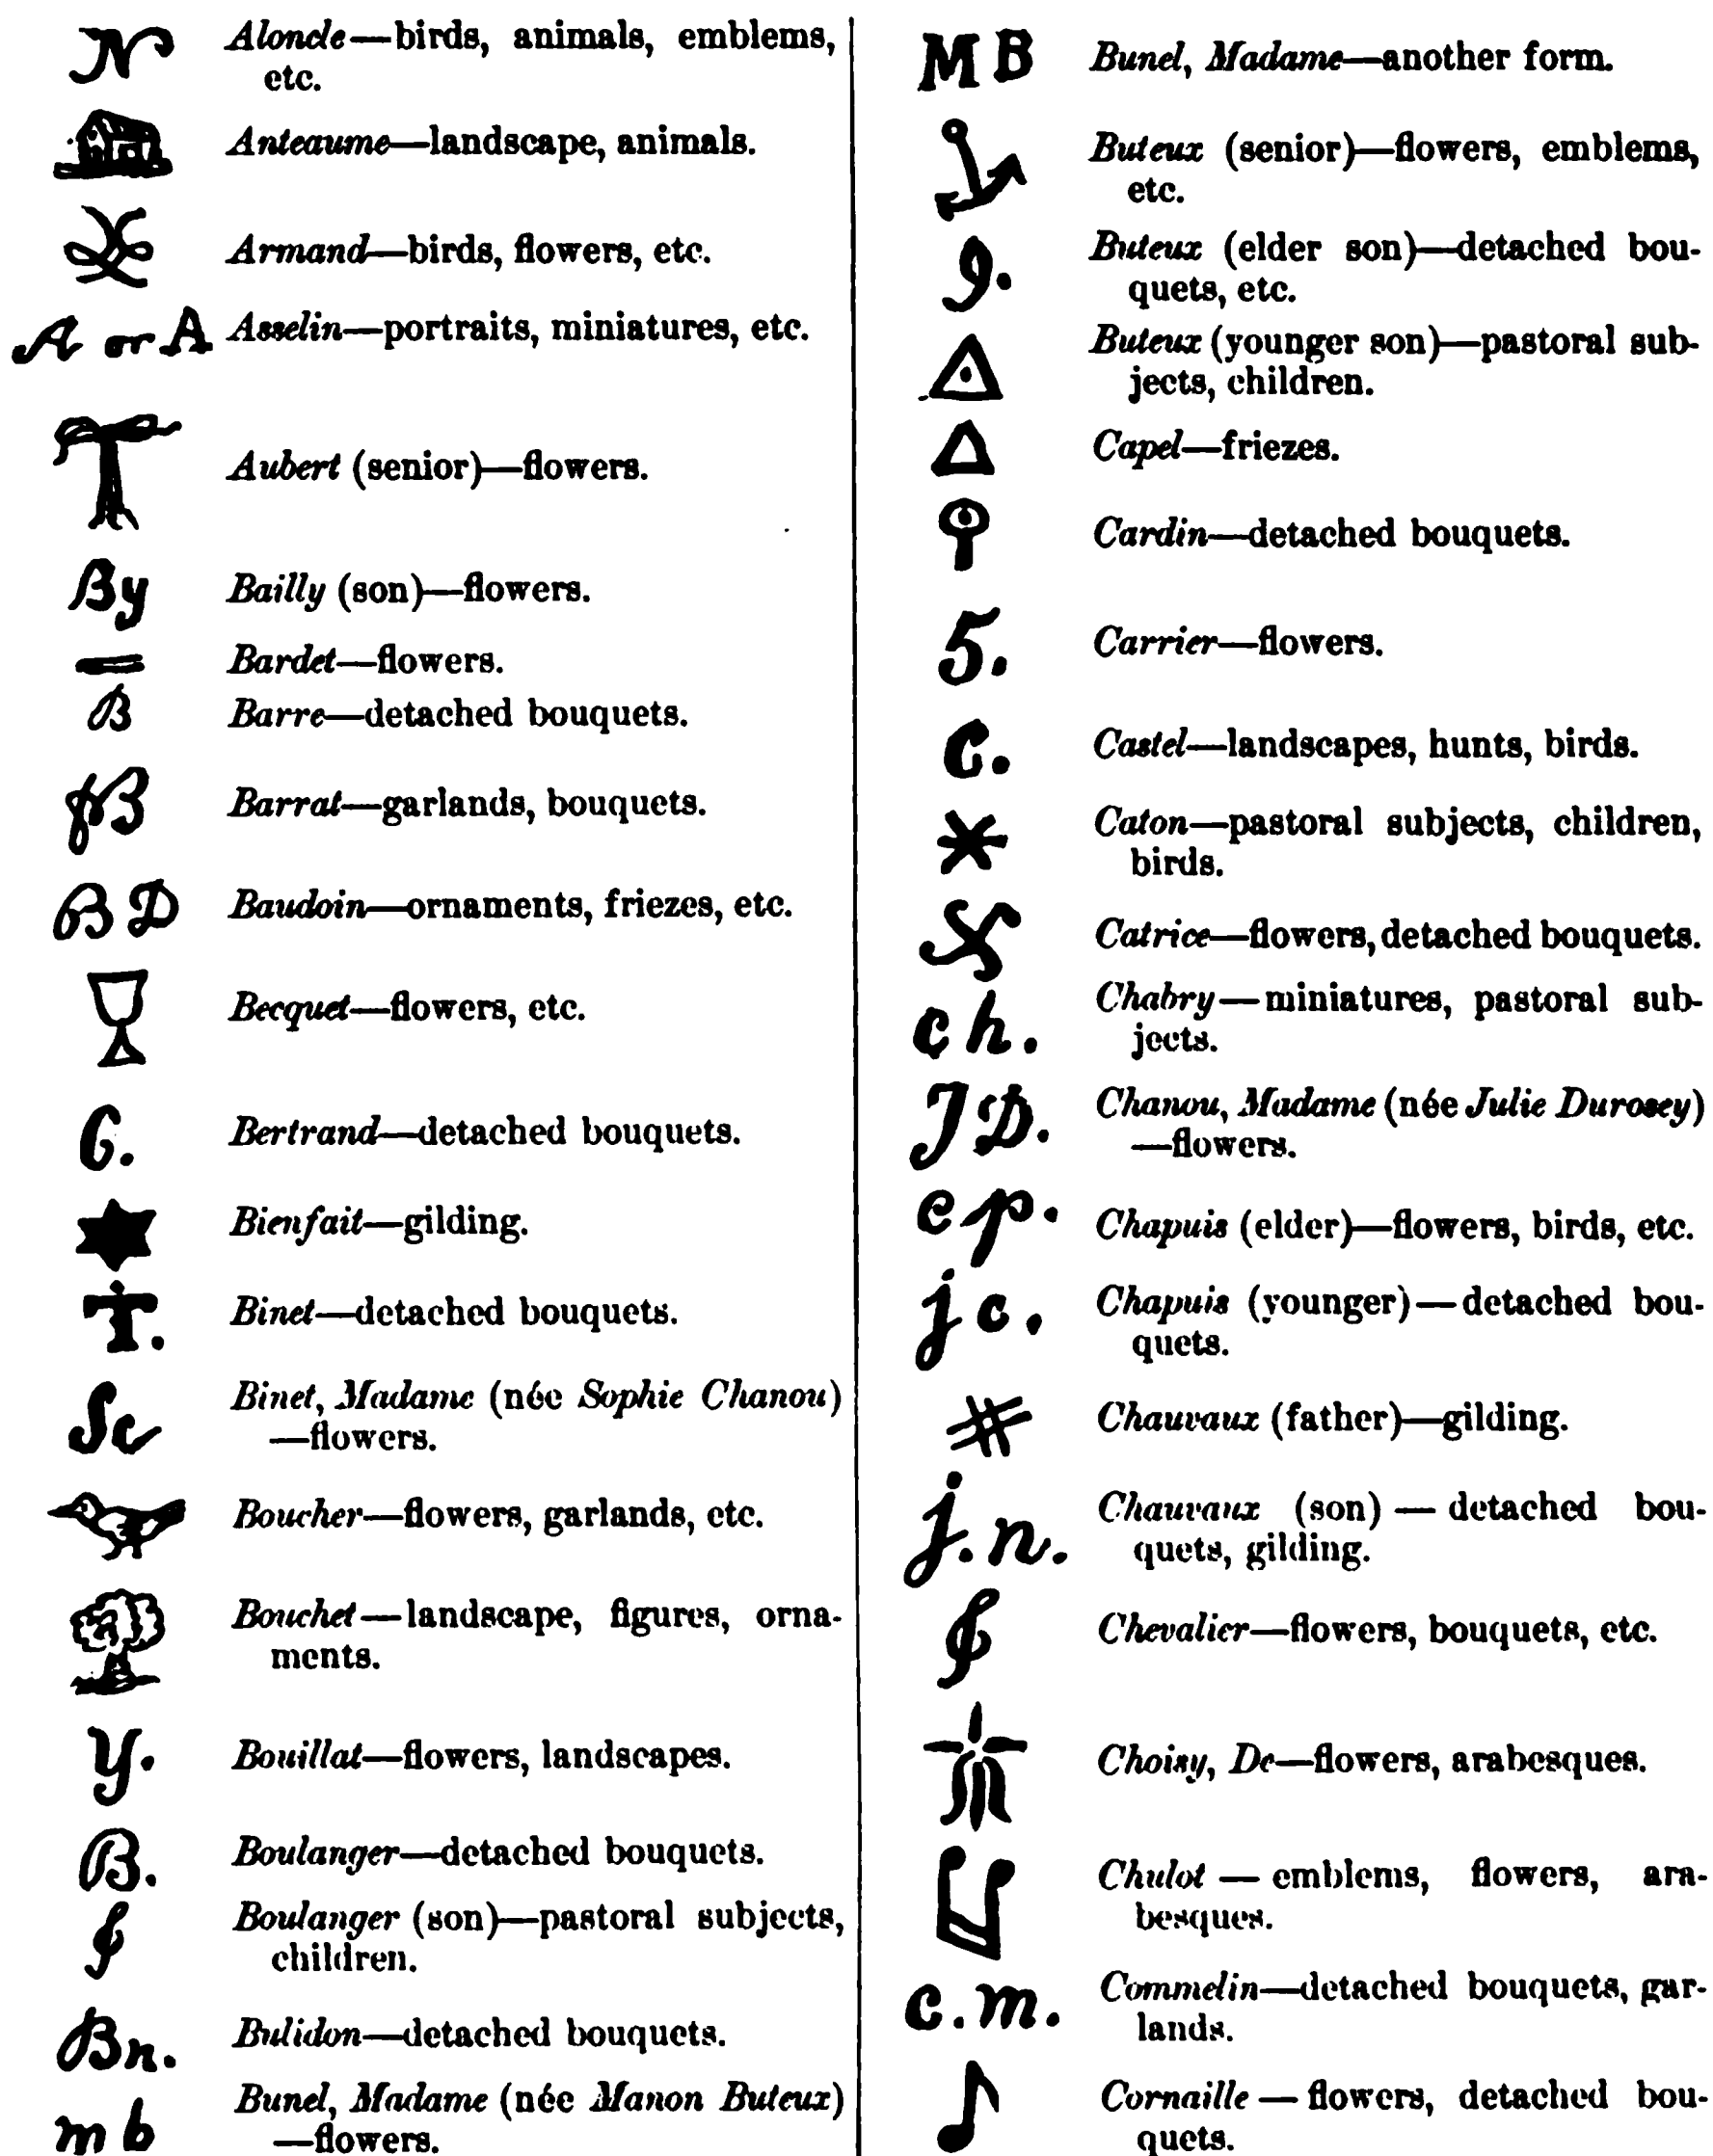 N Aloncle—birds, animals, emblems,
etc.
Anteaume—landscape, animals.
Armand—birds, flowers, etc.
A or A Asselin—portraits, miniatures, etc.
Aubert (senior)—flowers.
By Bailly (son)—flowers.
Bardet—flowers.
B Barre—detached bouquets.
Barrat—garlands, bouquets.
B D Baudoin—ornaments, friezes, etc.
Becquet—flowers, etc.
6. Bertrand—detached bouquets.
Bienfait—gilding.
T. Binet—detached bouquets.
Sc Binet, Madame (née Sophie Chanou)
—flowers.
Boucher—flowers, garlands, etc.
Bouchet—landscape, figures, orna-
ments.
Y. Bouillat—flowers, landscapes.
B. Boulanger—detached bouquets.
Boulanger (son)—pastoral subjects,
children.
Bn. Bulidon—detached bouquets.
m b Bunel, Madame (née Manon Buteux)
—flowers.
M B Bunel, Madame—another form.
Buteux (senior)—flowers, emblems,
etc.
9. Buteux (elder son)—detached bou-
quets, etc.
Buteux (younger son)—pastoral sub-
jects, children.
Capel—friezes.
Cardin—detached bouquets.
5. Carrier—flowers.
C. Castel—landscapes, hunts, birds.
Caton—pastoral subjects, children,
birds.
Catrice—flowers, detached bouquets.
ch. Chabry—miniatures, pastoral sub-
jects.
J D. Chanou, Madame (née Julie Durosey)
—flowers.
c p. Chapuis (elder)—flowers, birds, etc.
j c. Chapuis (younger)—detached bou-
quets.
Chauvaux (father)—gilding.
j. n. Chauvaux (son)—detached bou-
quets, gilding.
Chevalier—flowers, bouquets, etc.
Choisy, De—flowers, arabesques.
Chulot—emblems, flowers, ara-
besques.
c. m. Commelin—detached bouquets, gar-
lands.
Cornaille—flowers, detached bou-
quets.